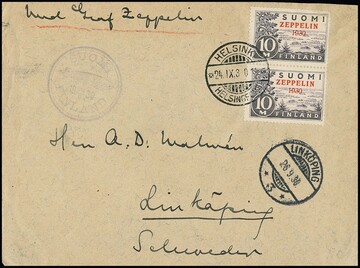 Med Graf Zeppelin
SUOMI
ZEPPELIN
1930
10 M
FINLAND
SUOMI
ZEPPELIN
1930
10 M
FINLAND
HELSINKI
24.IX.30
HELSINGFORS
LINKÖPING
26.9.30
*3*
Herr A. D. Malmén
Linköping
Schweden